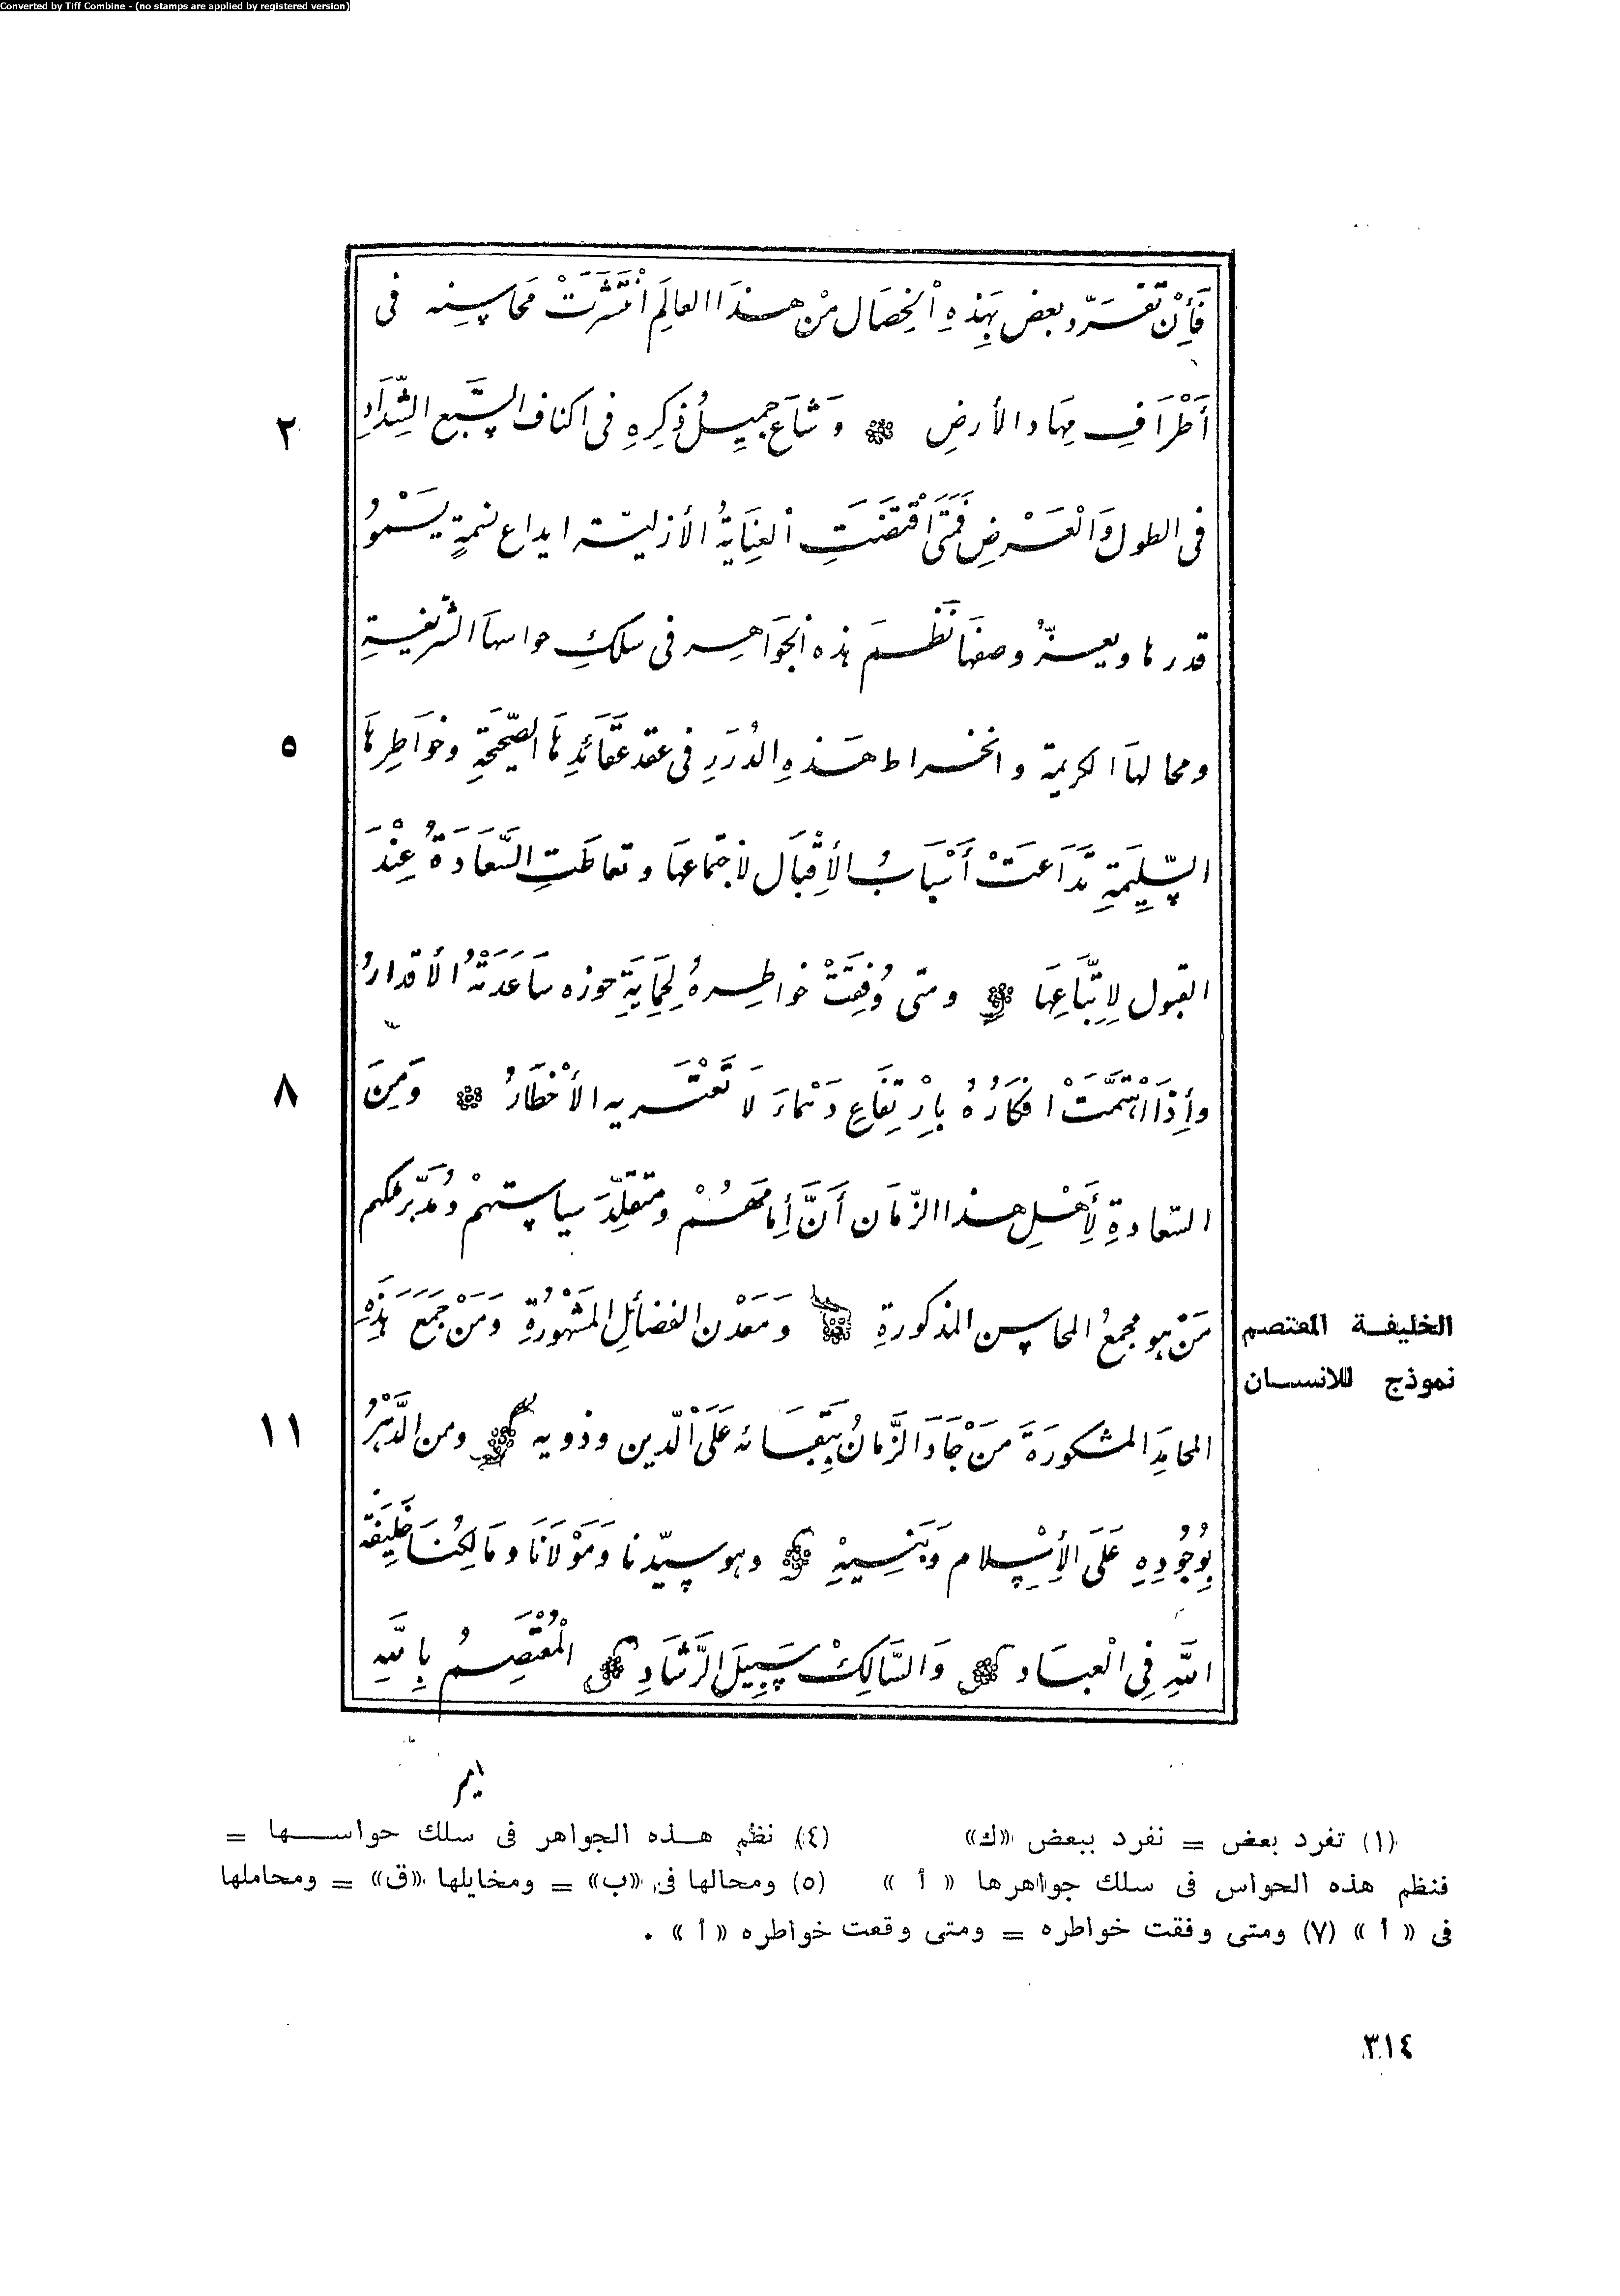 Converted by Tiff Combine - (no stamps are applied by registered version)
فَأِنْ تَفَرَّد بعض بِهَذِهِ ٱلْخِصَال مِنْ هذَا العالَمِ ٱنْتَشَرَتْ مَحَاسِنه فى
أَطْرَافِ مِهَاد الأرضِ وَشَاعَ جَمِيلُ ذِكرِهِ فى اكناف السَّبع الشِّدَادِ
٢
فى الطول وَالْعَرْضِ فَمَتَى ٱقْتَضَتِ ٱلعِنَايَةُ الأزليّة ايداع نسمةٍ يَسْمُو
قدرها ويعزُّ وصفها نَظْمَ هذه ٱلجَوَاهر فى سلكِ حواسهَا الشّريفةِ
ومحالهَا الكريمة وانخراط هَذهِ الدُرَرِ فى عقد عَقَائدِهَا الصّحيحَةِ وخوَاطِرهَا
٥
السّلِيمَةِ تَدَاعَتْ أَسْبَابُ الأِقْبَال لاجتماعهَا وتعاطَتِ السَّعَادَةُ عِنْدَ
القبول لِاِتِّبَاعِهَا ومتى وُفِقَتْ خواطرهُ لِحَمَايَةِ حوزه سَاعَدَتْهُ الأقدارُ
وأِذَا اهْتَمَّتْ افكارُهُ بِاِرْتِفَاعِ دَسْمَاءَ لَا تَعْتَريه الأَخْطَارُ وَمِنَ
٨
السّعادةِ لِأَهْلِ هذا الزّمَان أَنَّ أِمامَهُمْ ومتقلِّدَ سياستهمْ ومُدَبّر ملكهم
مَنْ هو مجمعُ المحاسن المذكورةِ وَمَعْدن الفضائلِ المَشْهُورَةِ وَمَنْ جَمَعَ هَذِهِ
الخليفة المعتصم
نموذج للانسان
المحامِدَ المشكورَةَ مَنْ جَادَ الزَّمَانُ بِبَقَائه عَلَى ٱلدّين وذويه ومن الدَّهْرُ
١١
بِوُجُودِهِ عَلَى الأِسْلام وَبَنِيهْ وهو سيّدنا وَمَوْلَانَا وَمَالِكُنَا خَلِيفَة
اللَّهِ فِى الْعبَاد وَالسَّالِكْ سَبِيلَ الرَّشَادِ الْمُعْتَصِمُ بِاللَّهِ
امير
(١) تفرد بعض = نفرد ببعض «ك» (٤) نظم هذه الجواهر فى سلك حواسها =
فنظم هذه الحواس فى سلك جواهرها « أ » (٥) ومحالها فى «ب» = ومخايلها «ق» = ومحاملها
فى « أ » (٧) ومتى وفقت خواطره = ومتى وقعت خواطره « أ » .
٣١٤